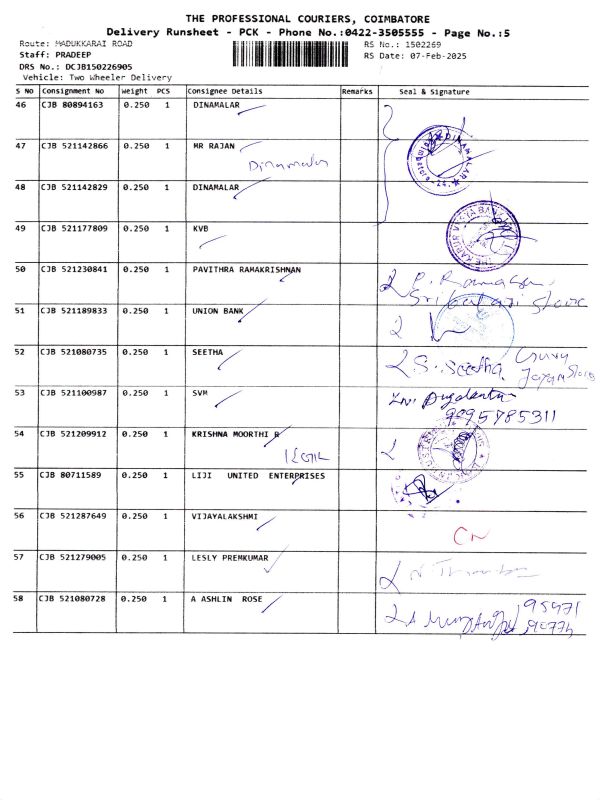 THE PROFESSIONAL COURIERS, COIMBATORE
Delivery Runsheet - PCK - Phone No.:0422-3505555 - Page No.:5
Route: MADUKKARAI ROAD RS No.: 1502269
Staff: PRADEEP RS Date: 07-Feb-2025
DRS No.: DCJB150226905
Vehicle: Two Wheeler Delivery
S NO Consignment No Weight PCS Consignee Details Remarks Seal & Signature
46 CJB 80894163 0.250 1 DINAMALAR
47 CJB 521142866 0.250 1 MR RAJAN
Dinamalar
DINAMALAR
48 CJB 521142829 0.250 1 DINAMALAR
49 CJB 521177809 0.250 1 KVB
THE KARUR VYSYA BANK
50 CJB 521230841 0.250 1 PAVITHRA RAMAKRISHNAN
51 CJB 521189833 0.250 1 UNION BANK
52 CJB 521080735 0.250 1 SEETHA
S. Seetha
53 CJB 521100987 0.250 1 SVM
9095785311
54 CJB 521209912 0.250 1 KRISHNA MOORTHI R
55 CJB 80711589 0.250 1 LIJI UNITED ENTERPRISES
56 CJB 521287649 0.250 1 VIJAYALAKSHMI
CN
57 CJB 521279005 0.250 1 LESLY PREMKUMAR
58 CJB 521080728 0.250 1 A ASHLIN ROSE